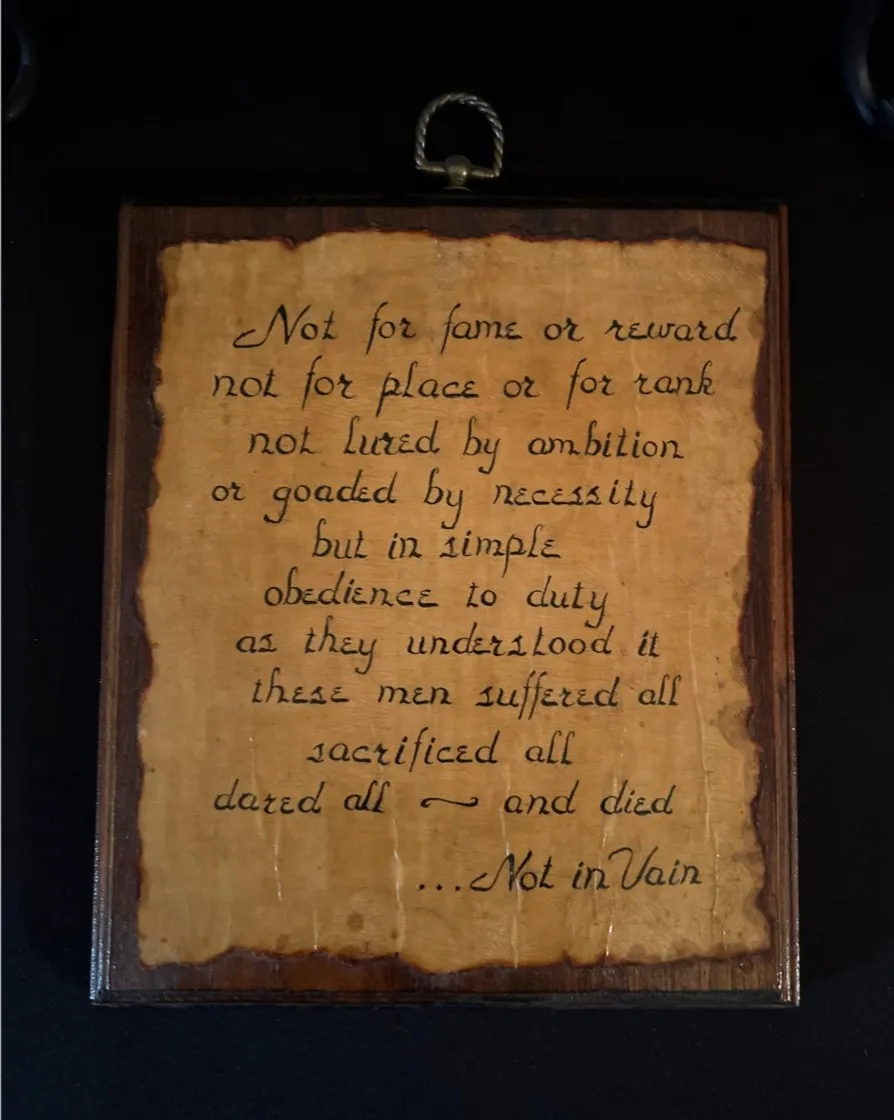 Not for fame or reward
not for place or for rank
not lured by ambition
or goaded by necessity
but in simple
obedience to duty
as they understood it
these men suffered all
sacrificed all
dared all ~ and died
...Not in Vain